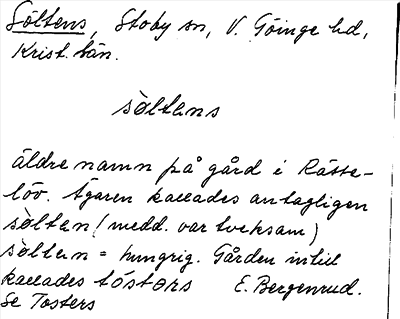 Söltens, Stoby sn, V. Göinge hd,
Krist. län.
söltens
äldre namn på gård i Rätte-
löv. Ägaren kallades antagligen
söltan (medd. var tveksam)
söltan = hungrig. Gården intill
kallades tósters E. Bergenrud.
Se Tosters